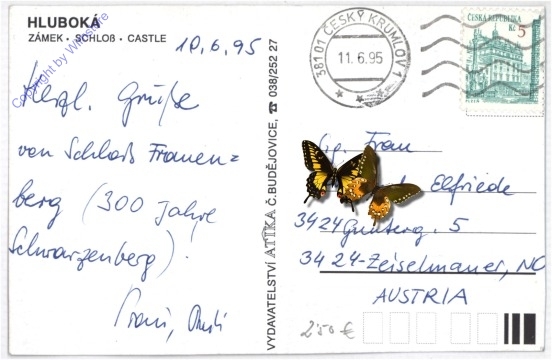 HLUBOKÁ
ZÁMEK • SCHLOß • CASTLE
10.6.95
Copyright by
Herzl. Grüße
von Schloß Frauen=
berg (300 Jahre
Schwarzenberg)!
VYDAVATELSTVÍ ATIKA Č.BUDĚJOVICE, ☎ 038/252 27
381 01 ČESKÝ KRUMLOV 1
11.6.95
ČESKÁ REPUBLIKA
Kč 5
PLZEŇ
Frau
Elfriede
3424 5
3424-Zeiselmauer, NÖ
AUSTRIA
250 €